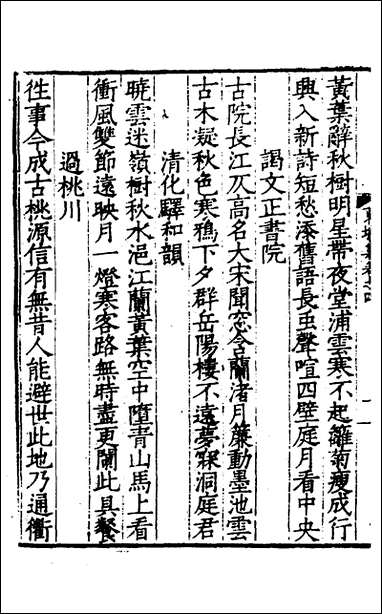 黃葉辭秋樹明星帶夜堂浦雲寒不起籬菊瘦成行
興入新詩短愁添舊語長虫聲喧四壁庭月看中央
謁文正書院
古院長江仄高名大宋聞窓含蘭渚月簾動墨池雲
古木凝秋色寒鴉下夕群岳陽樓不遠夢寐洞庭君
清化驛和韻
曉雲迷嶺樹秋水浥江蘭黃葉空中墮青山馬上看
衝風雙節遠映月一燈寒客路無時盡更闌此具餐
過桃川
徃事今成古桃源信有無昔人能避世此地乃通衢